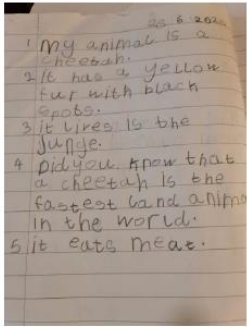 1 My animal is a
cheetah.
2 It has a yellow
fur with black
spots.
3 it lives is the
Junge.
4 Did you know that
a cheetah is the
fastest land anima
in the world.
5 it eats meat.